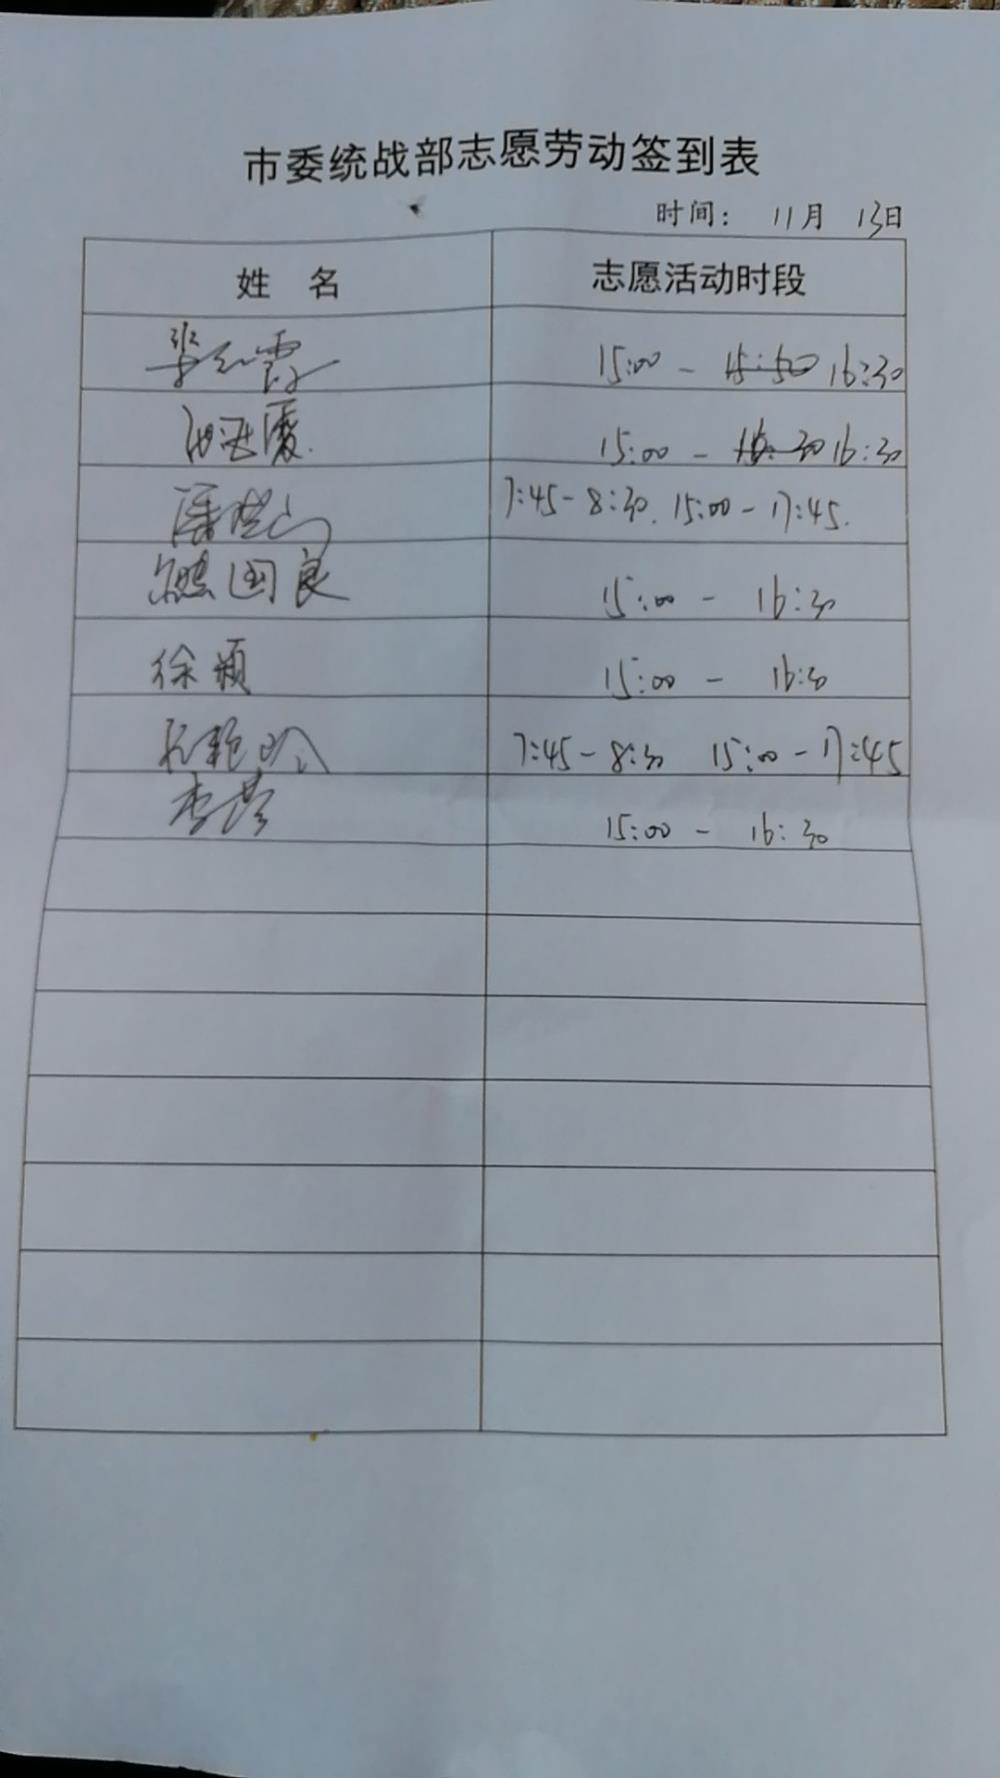 市委统战部志愿劳动签到表
时间： 11月 13日
姓 名 志愿活动时段
15:00 - 15:50 16:30
15:00 - 16:30 16:30
7:45-8:30. 15:00-17:45.
熊国良 15:00 - 16:30
徐颖 15:00 - 16:30
7:45-8:30 15:00-17:45
李 15:00 - 16:30